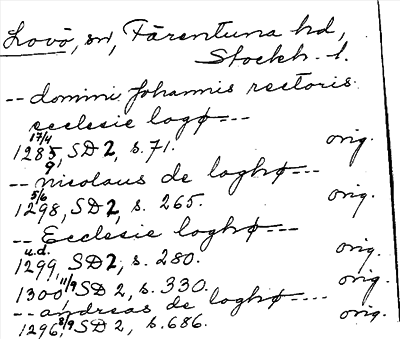 Lovö, sn, Färentuna hd,
Stockh. l.
-- domini Johannis rectoris
ecclesie logø ---
17/4 1285, SD 2, s. 71. orig.
9
-- nicolaus de loghø ---
5/6 1298, SD 2, s. 265. orig.
-- Ecclesie loghø ---
u.d. 1299, SD 2, s. 280. orig.
1300 11/9 SD 2, s. 330. orig.
-- andreas de loghø ---
1296, 8/9 SD 2, s. 686. orig.